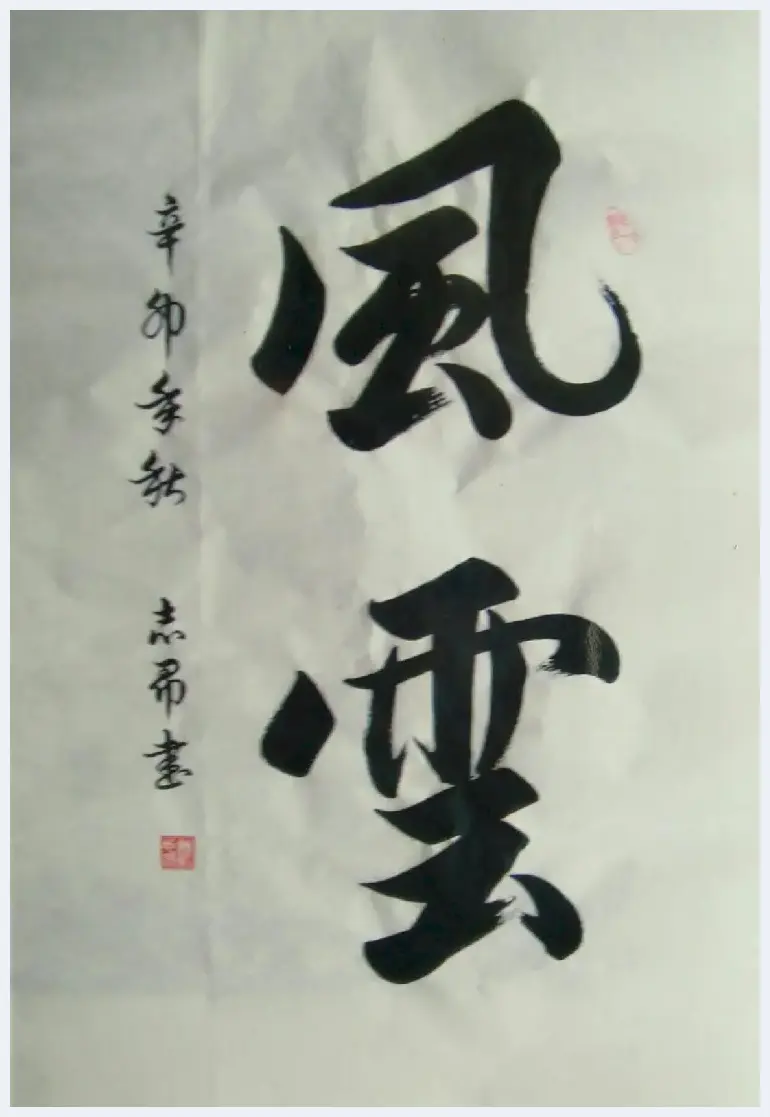 風雲
辛卯年秋 志昂書